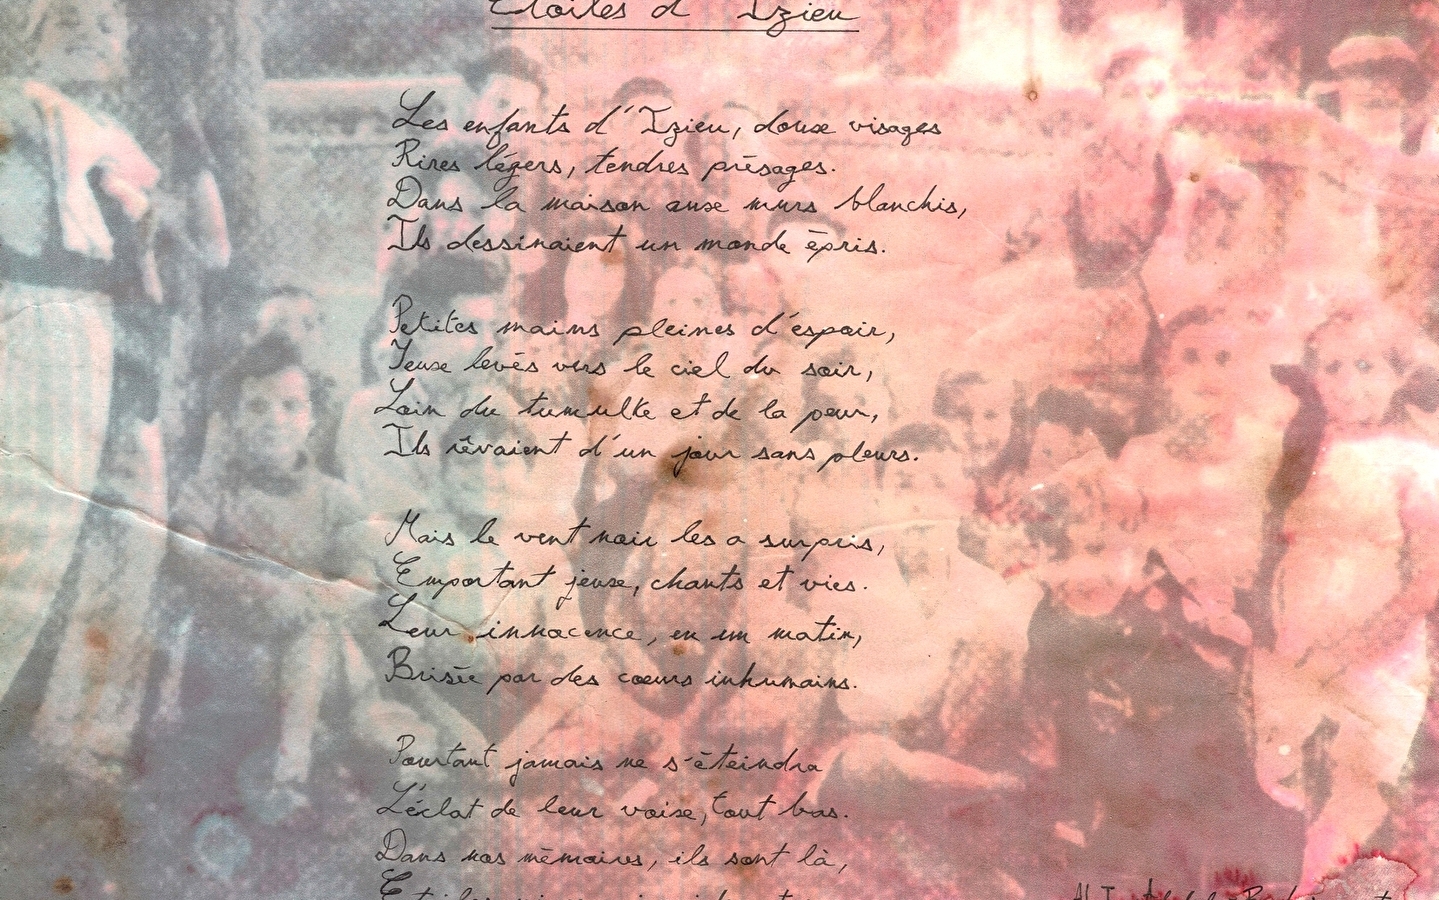 Etoiles d'Izieu
Les enfants d'Izieu, doux visages
Rires légers, tendres présages.
Dans la maison aux murs blanchis,
Ils dessinaient un monde épris.
Petites mains pleines d'espoir,
Yeux levés vers le ciel du soir,
Loin du tumulte et de la peur,
Ils rêvaient d'un jour sans pleurs.
Mais le vent noir les a surpris,
Emportant jeux, chants et vies.
Leur innocence, en un matin,
Brisée par des cœurs inhumains.
Pourtant jamais ne s'éteindra
L'éclat de leur voix, tout bas.
Dans nos mémoires, ils sont là,